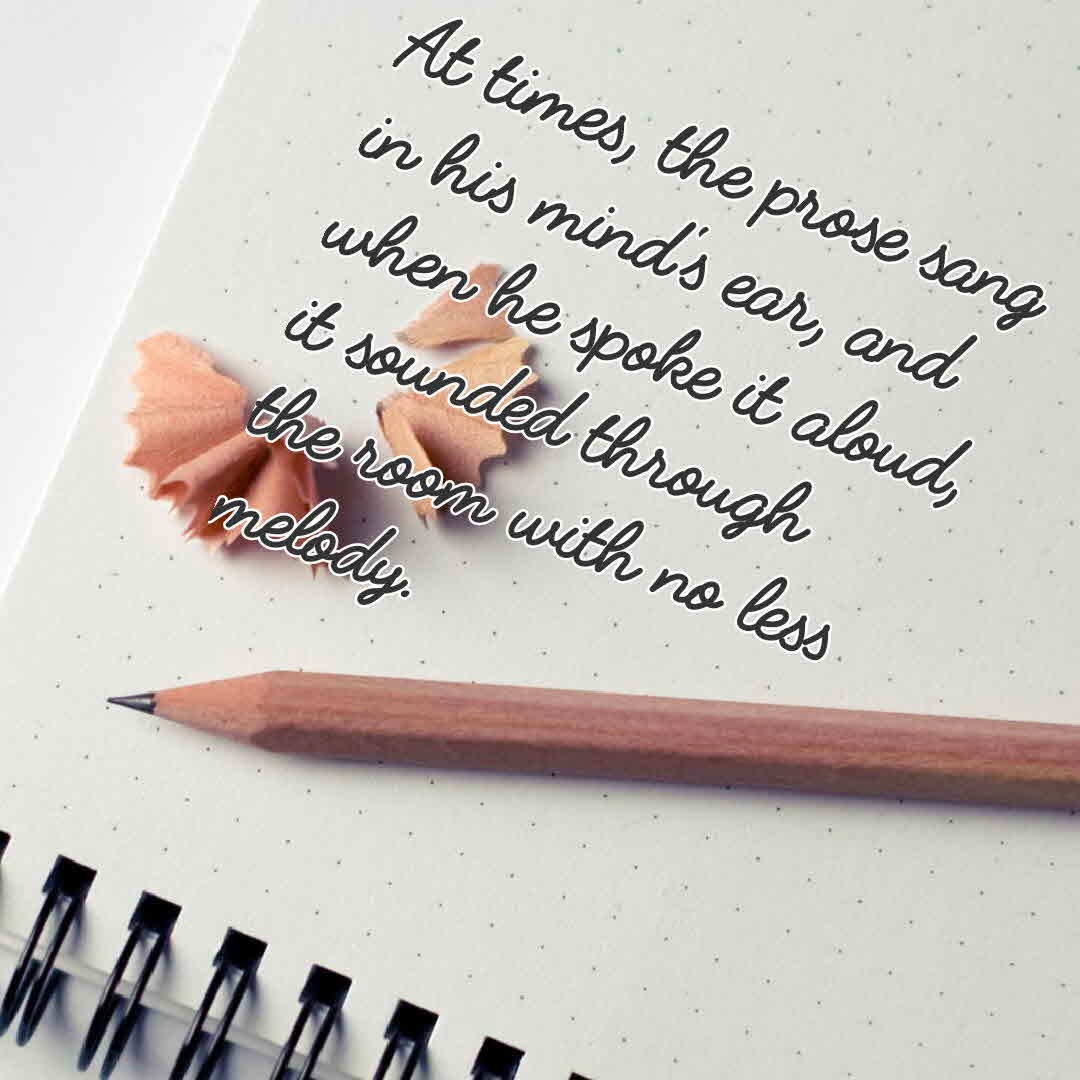 At times, the prose sang
in his mind's ear, and
when he spoke it aloud,
it sounded through
the room with no less
melody.